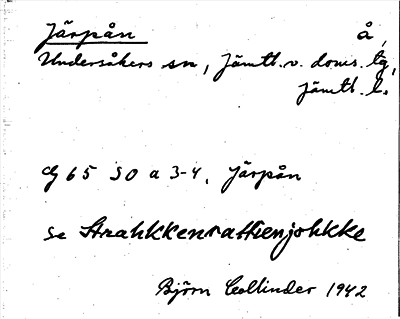 Järpån å,
Undersåkers sn, Jämtl. v. doms. tg,
Jämtl. l.
G 65 SO a 3-4, Järpån
se Strahkkenrattienjohkke
Björn Collinder 1942